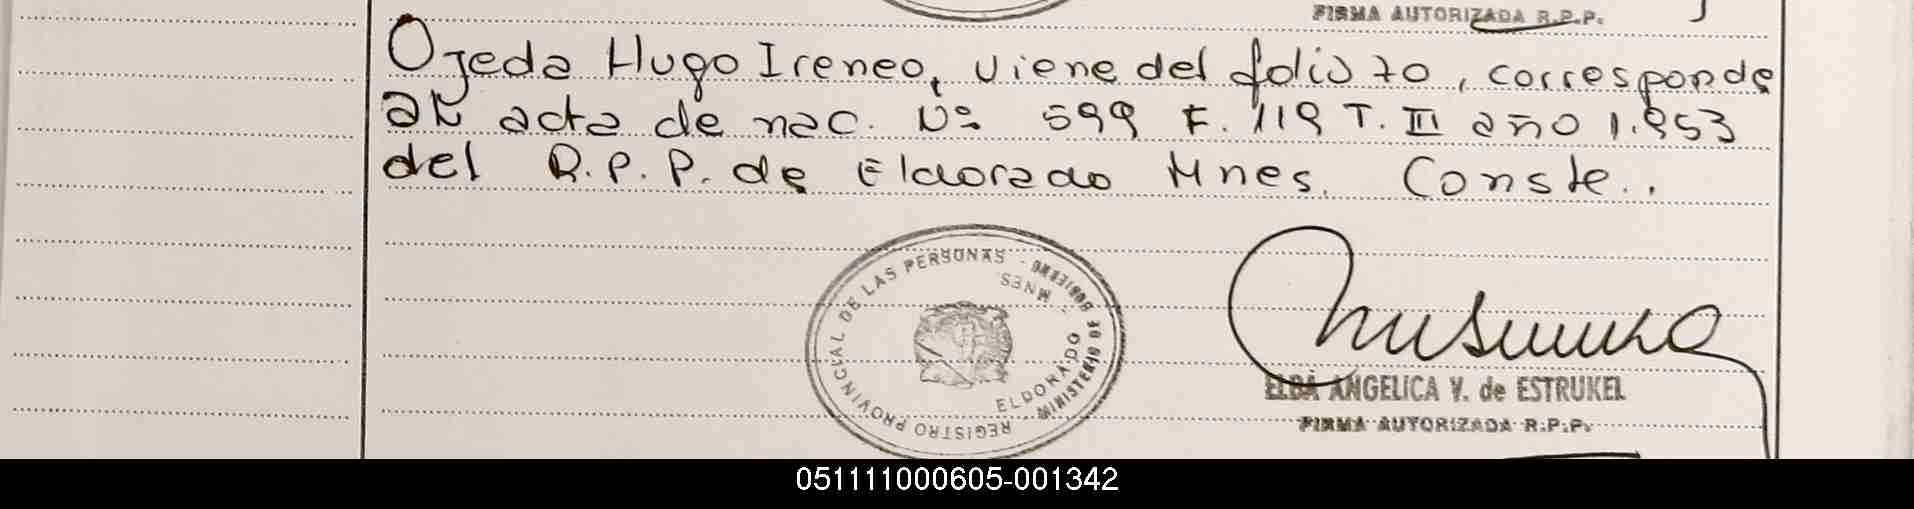 FIRMA AUTORIZADA R.P.P.
Ojeda Hugo Ireneo, viene del folio 70, corresponde
al acta de nac. Nº 599 F. 119 T. III año 1.953
del R.P.P. de Eldorado Mnes. Conste..
REGISTRO PROVINCIAL DE LAS PERSONAS - MINISTERIO DE GOBIERNO
ELDORADO - MNES.
ELBA ANGELICA V. de ESTRUKEL
FIRMA AUTORIZADA R.P.P.
051111000605-001342